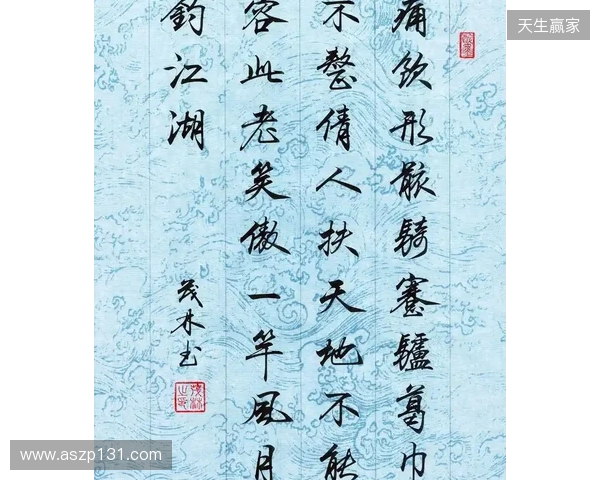 天生赢家
痛飲形骸騎蹇驢葛巾
不整倩人扶天地不能
容此老笑傲一竿風月
釣江湖
茂林书
www.aszp131.com